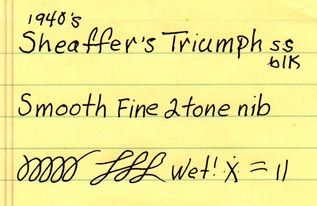 1940's
Sheaffer's Triumph ss
blk
Smooth Fine 2tone nib
Wet! ẋ = 11